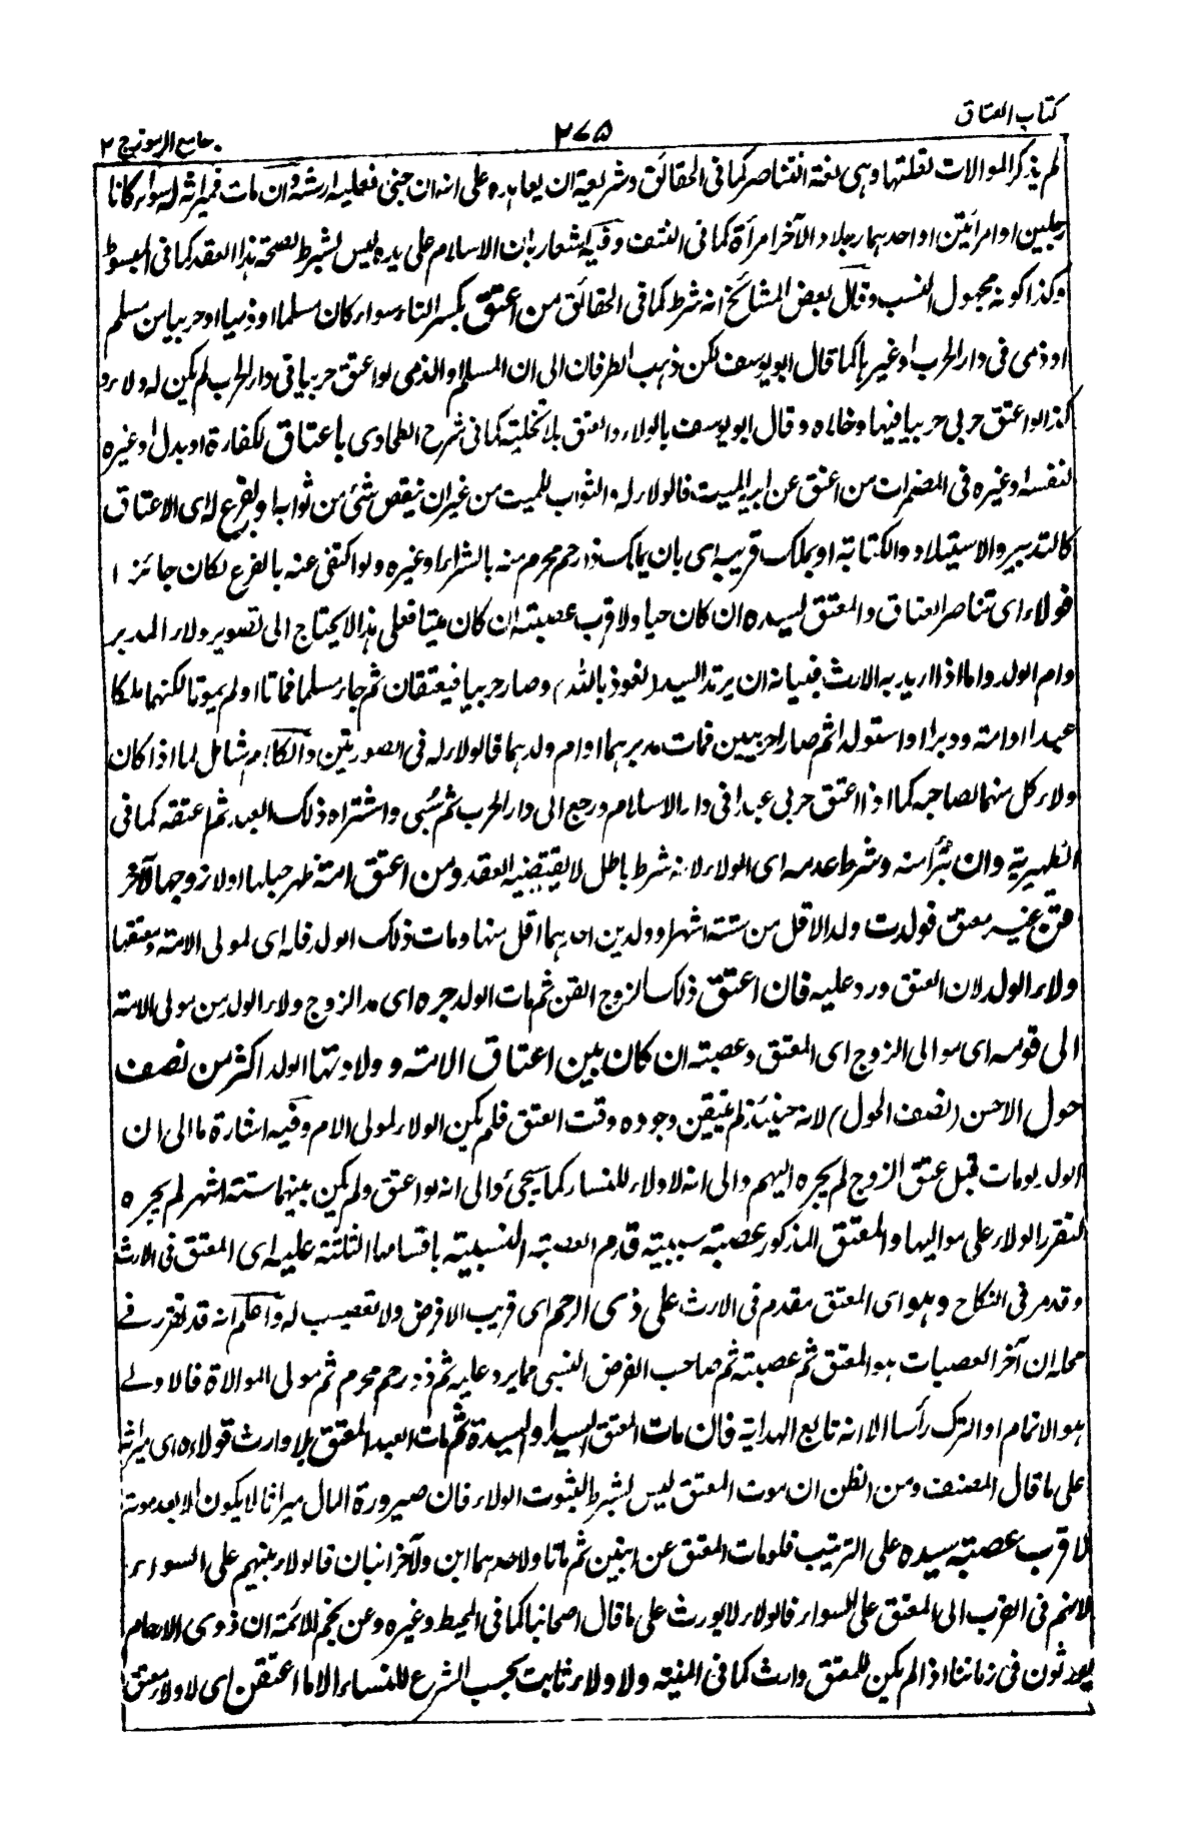 كتاب العتاق
٢٧٥
جامع الرموز ج ٢
لم يذكر الموالات لقلتها وهى لغة التناصر كما فى الحقائق وشريعة ان يعاهده على انه ان جنى فعليه ارشه وان مات فميراثه له سواء كانا
رجلين او امرأتين او احدهما رجلا والآخر امرأة كما فى النتف وفيه اشعار بان الاسلام على يده ليس بشرط لصحة هذا العقد كما فى المبسوط
وكذا كونه مجهول النسب وقال بعض المشائخ انه شرط كما فى الحقائق من اعتق بكسر التاء سواء كان مسلما او ذميا او حربيا من مسلم
او ذمى فى دار الحرب او غيرها كما قال ابو يوسف لكن ذهب الطرفان الى ان المسلم او الذمى لو اعتق حربيا فى دار الحرب لم يكن له ولاءه
كذا لو اعتق حربى حربيا فيها وخلاه وقال ابو يوسف بالولاء والعتق بلا تخلية كما فى شرح الطحاوى باعتاق لكفارة او بدل او غيره
لنفسه او غيره فى المضمرات من اعتق عن ابيه الميت فالولاء له والثواب للميت من غير ان ينقص شئ من ثوابه او بفرع له اى الاعتاق
كالتدبير والاستيلاد والكتابة او بملك قريبه اى بان يملك ذا رحم محرم منه بالشراء او غيره ولو اكتفى عنه بالفرع لكان جائزا
فولاءه اى تناصر العتاق والمعتق لسيده ان كان حيا ولاقرب عصبته ان كان ميتا فعلى هذا لا يحتاج الى تصوير ولاء المدبر
وام الولد واما اذا اريد به الارث فبيانه ان يرتد السيد (نعوذ بالله) وصار حربيا فيعتقان ثم جاء مسلما فماتا او لم يموتا لكنهما ملكا
عبدا او امة ودبرا او استولدا ثم صارا حربيين فمات مدبرهما او ام ولدهما فالولاء له فى الصورتين والكلام شامل لما اذا كان
ولاء كل منهما لصاحبه كما اذا اعتق حربى عبدا فى دار الاسلام ورجع الى دار الحرب ثم سُبى واشتراه ذلك العبد ثم اعتقه كما فى
الظهيرية وان تبرأ منه وشرط عدمه اى الولاء لانه شرط باطل لا يقتضيه العقد ومن اعتق امة ظهر حبلها اولا زوجها الآخر
قن غير معتق فولدت ولدا لاقل من ستة اشهر او ولدين احدهما اقل منها ومات ذلك الولد فله اى لمولى الامة ومعتقها
ولاء الولد لان العتق ورد عليه فان اعتق ذلك الزوج القن ثم مات الولد جره اى مد الزوج ولاء الولد من مولى الامة
الى قومه اى موالى الزوج اى المعتق وعصبته ان كان بين اعتاق الامة و ولادتها الولد اكثر من نصف
حول الاحسن (نصف الحول) لانه حينئذ لم يتيقن وجوده وقت العتق فلم يكن الولاء لمولى الام وفيه اشارة ما الى ان
الولد لو مات قبل عتق الزوج لم يجره اليهم والى انه لا ولاء للنساء كما سيجئ والى انه لو اعتق ولم يكن بينهما ستة اشهر لم يجره
لتقرر الولاء على مواليها والمعتق المذكور عصبة سببية قدم العصبة النسبية باقسامها الثلثة عليه اى المعتق فى الارث
وقد مر فى النكاح وهو اى المعتق مقدم فى الارث على ذى الرحم اى قريب لا فرض ولا تعصيب له واعلم انه قد تقرر فى
محله ان آخر العصبات هو المعتق ثم عصبته ثم صاحب الفرض النسبى مما يرد عليه ثم ذو رحم محرم ثم مولى الموالاة فالاولى
هو الاتمام او الترك رأسا الا انه تابع الهداية فان مات المعتق السيد او السيدة ثم مات العبد المعتق بلا وارث فولاءه اى ميراثه
على ما قال المصنف ومن الظن ان موت المعتق ليس بشرط لثبوت الولاء فان صيرورة المال ميراثا لا يكون الا بعد موته
لاقرب عصبة سيده على الترتيب فلو مات المعتق عن ابنين ثم ماتا ولاحدهما ابن ولآخر ابنان فالولاء بينهم على السواء
لانهم فى القرب الى المعتق على السواء فالولاء لا يورث على ما قال اصحابنا كما فى المحيط وغيره وعن نجم الائمة ان ذوى الارحام
يورثون فى زماننا اذا لم يكن للمعتق وارث كما فى المنية ولا ولاء ثابت بحسب الشرع للنساء الا ما اعتقن اى لا ولاء معتق